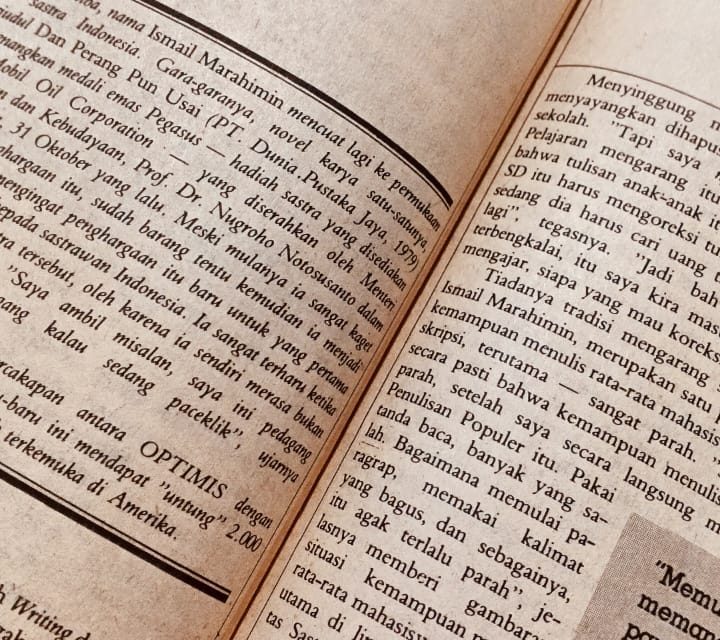 nama Ismail Marahimin mencuat lagi ke permukaan
sastra Indonesia. Gara-garanya, novel karya satu-satunya,
judul Dan Perang Pun Usai (PT. Dunia Pustaka Jaya, 1979)
menangkan medali emas Pegasus — hadiah sastra yang disediakan
Mobil Oil Corporation — yang diserahkan oleh Menteri
dan Kebudayaan, Prof. Dr. Nugroho Notosusanto dalam
31 Oktober yang lalu. Meski mulanya ia sangat kaget
penghargaan itu, sudah barang tentu kemudian ia menjadi
mengingat penghargaan itu baru untuk yang pertama
kepada sastrawan Indonesia. Ia sangat terharu ketika
tersebut, oleh karena ia sendiri merasa bukan
"Saya ambil misalan, saya ini pedagang
kalau sedang paceklik", ujarnya
percakapan antara OPTIMIS dengan
-baru ini mendapat "untung" 2.000
terkemuka di Amerika.
Writing
Menyinggung
menyayangkan dihapus
sekolah. "Tapi saya
Pelajaran mengarang itu
bahwa tulisan anak-anak
SD itu harus mengoreksi
sedang dia harus cari uang
lagi". tegasnya. "Jadi
terbengkalai, itu saya kira
mengajar, siapa yang mau koreks
Tiadanya tradisi mengarang
Ismail Marahimin, merupakan satu
kemampuan menulis rata-rata mahasis
skripsi, terutama — sangat parah.
secara pasti bahwa kemampuan menulis
parah, setelah saya secara langsung
Penulisan Populer itu. Pakai
tanda baca, banyak yang sa-
lah. Bagaimana memulai pa-
ragrap, memakai kalimat
yang bagus, dan sebagainya,
itu agak terlalu parah", je-
lasnya memberi gambara
situasi kemampuan
rata-rata mahasisw
utama di
tas Sas
"Memu
mema